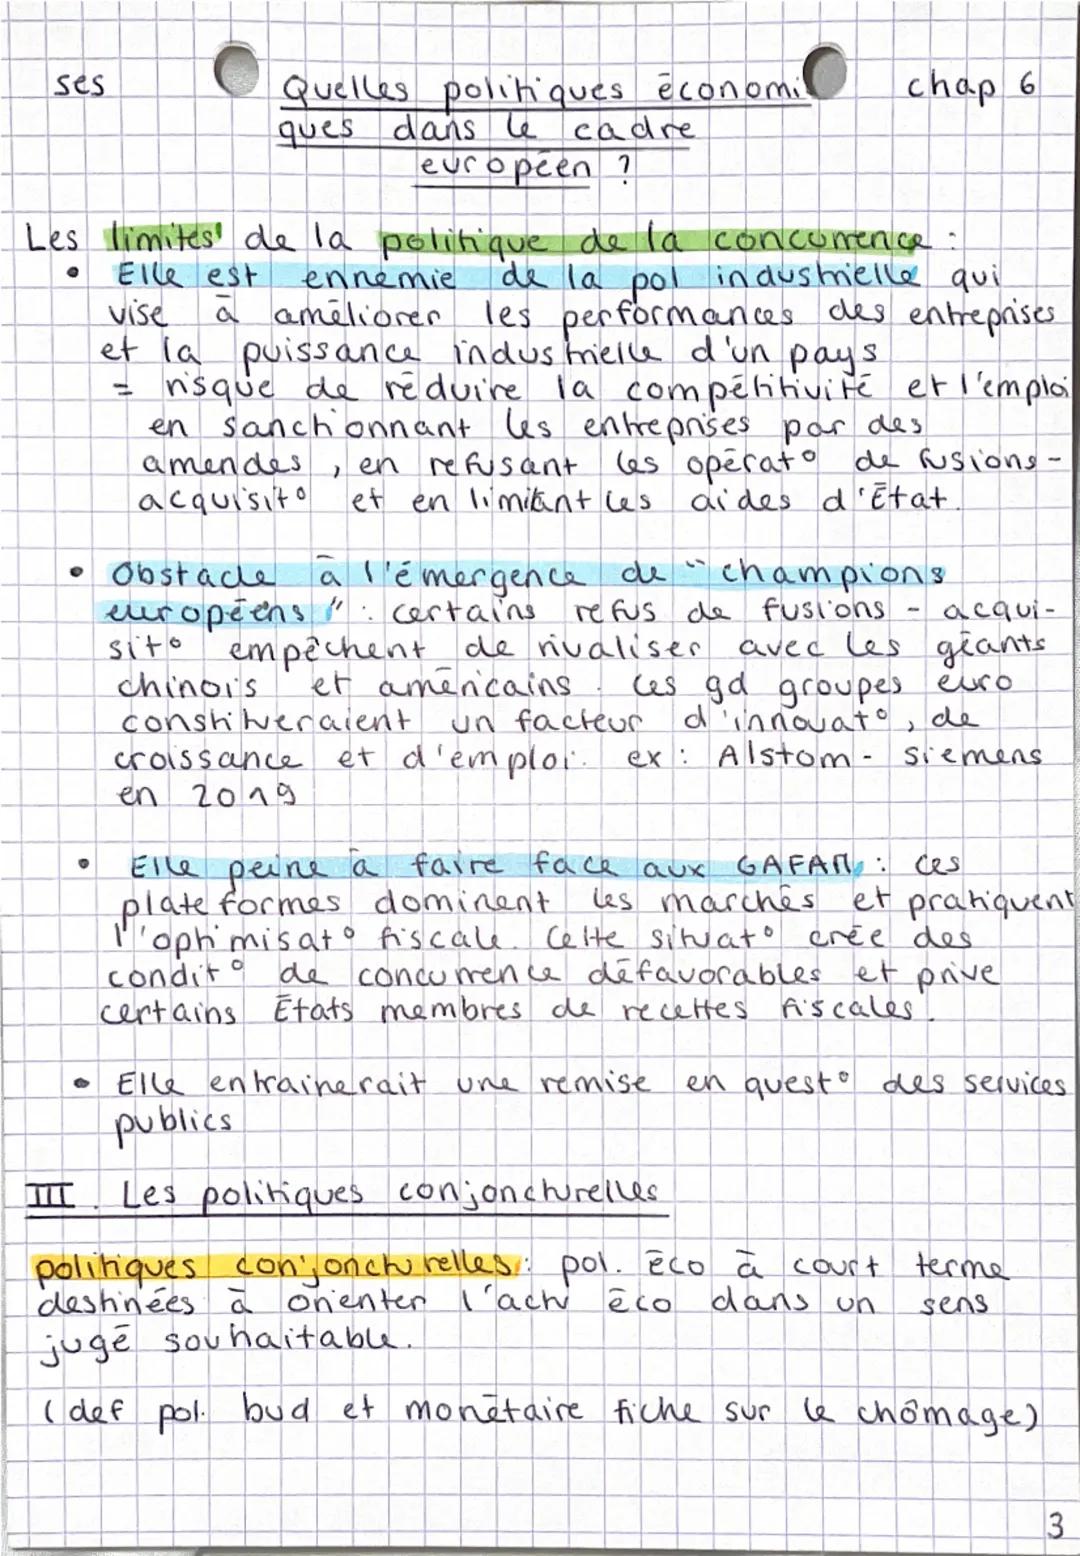 ses
Quelles politiques économi
chap 6
ques dans le cadre
européen ?
Les limites de la politique de la concurrence :
• Elle est ennemie de la pol industrielle qui
vise à améliorer les performances des entreprises
et la puissance industrielle d'un pays
= risque de réduire la compétitivité et l'emploi
en sanctionnant les entreprises par des
amendes, en refusant les opérat° de fusions-
acquisit° et en limitant les aides d'État.
• Obstacle à l'émergence de "champions
européens" : certains refus de fusions - acqui-
sit° empêchent de rivaliser avec les géants
chinois et américains. Ces gd groupes euro
constitueraient un facteur d'innovat°, de
croissance et d'emploi. ex : Alstom - Siemens
en 2019
• Elle peine à faire face aux GAFAM : ces
plateformes dominent les marchés et pratiquent
l'optimisat° fiscale. Cette situat° crée des
condit° de concurrence défavorables et prive
certains États membres de recettes fiscales.
• Elle entrainerait une remise en quest° des services
publics
III. Les politiques conjoncturelles
politiques conjoncturelles : pol. éco à court terme
destinées à orienter l'activ éco dans un sens
jugé souhaitable.
(def pol. bud et monétaire fiche sur le chômage)
3